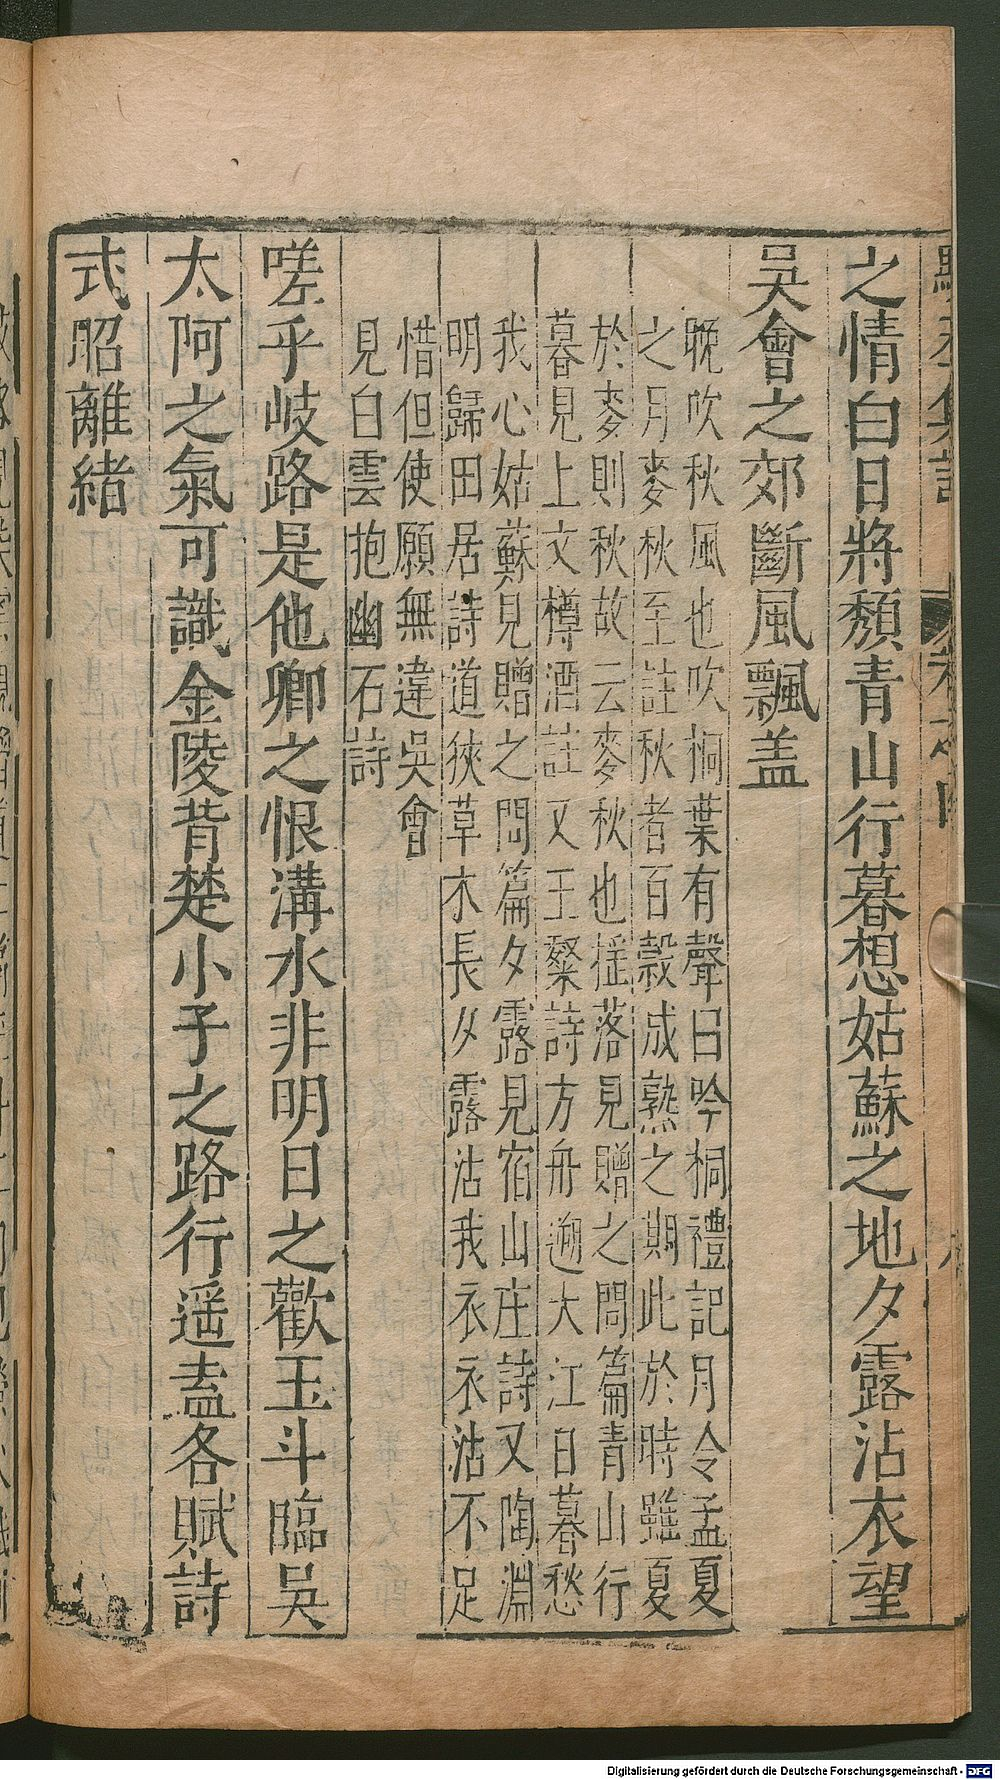 之情白日將頹青山行暮想姑蘇之地夕露沾衣望
吳會之郊斷風飄盖
晚吹秋風也吹桐葉有聲曰吟桐禮記月令孟夏
之月麥秋至註秋者百穀成熟之期此於時雖夏
於麥則秋故云麥秋也揺落見贈之問篇青山行
暮見上文樽酒註又王粲詩方舟遡大江日暮愁
我心姑蘇見贈之問篇夕露見宿山庄詩又陶淵
明歸田居詩道狹草木長夕露沾我衣衣沾不足
惜但使願無違吳會
見白雲抱幽石詩
嗟乎岐路是他卿之恨溝水非明日之歡玉斗臨吳
太阿之氣可識金陵背楚小子之路行遥盍各賦詩
式昭離緒
Digitalisierung gefördert durch die Deutsche Forschungsgemeinschaft - DFG